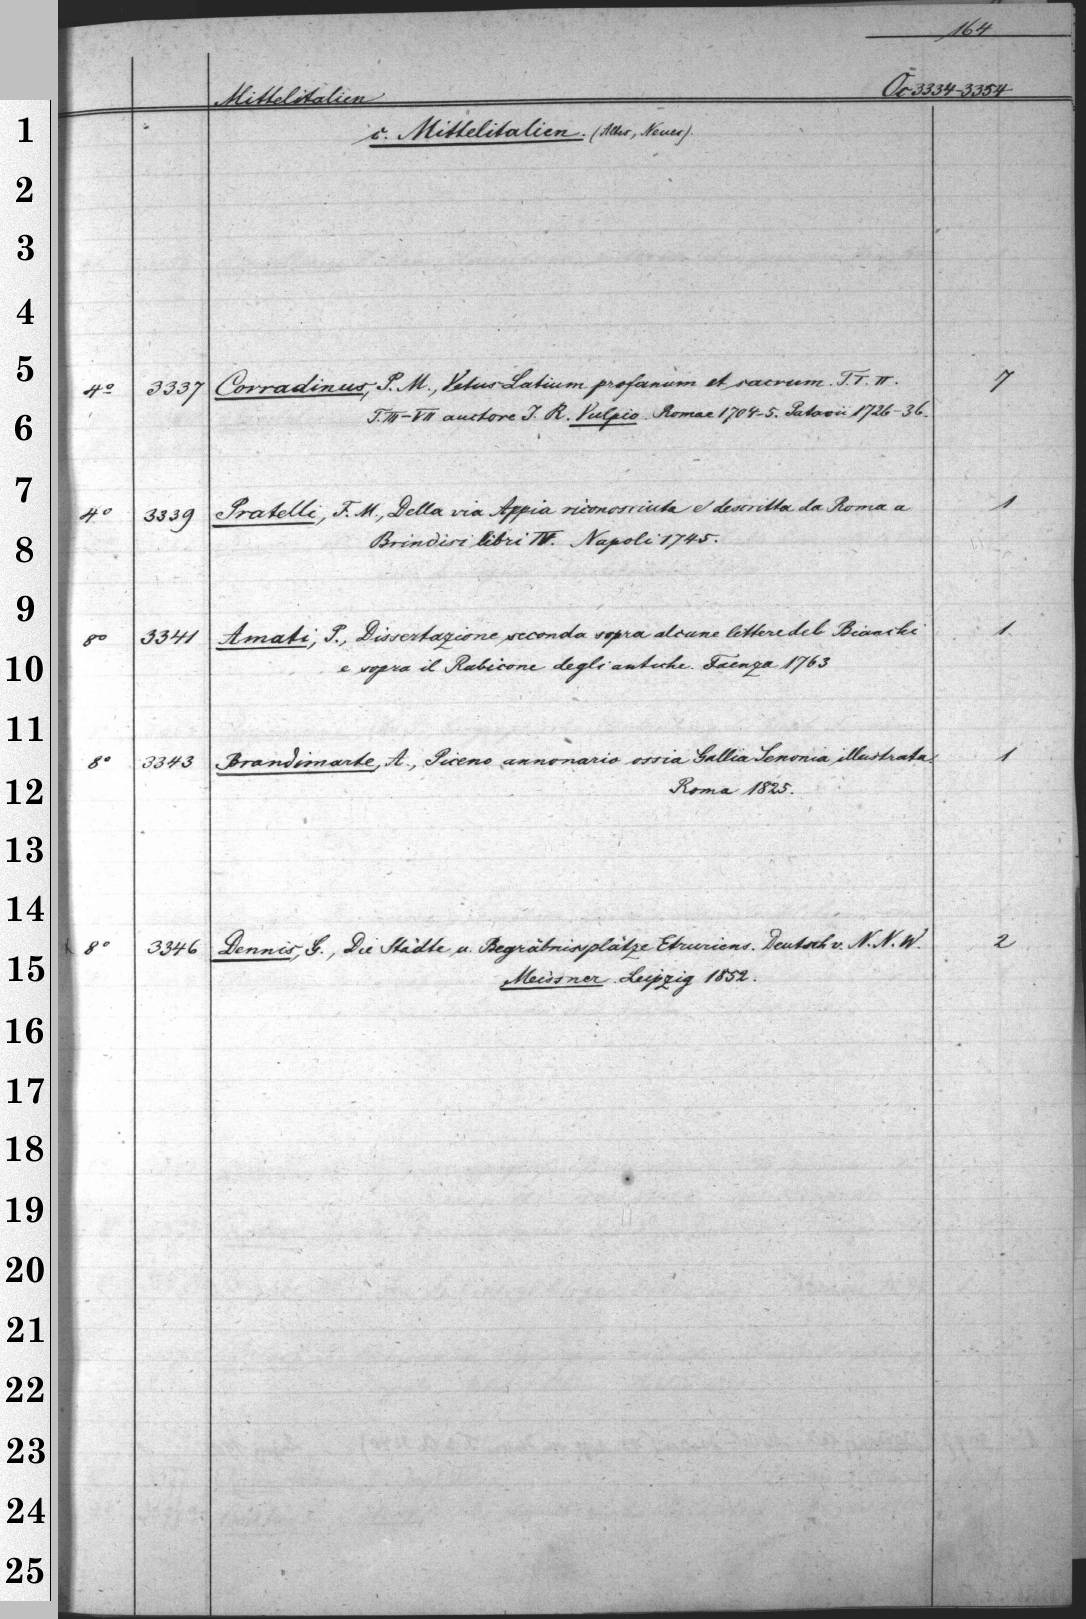 164
Mittelitalien Oc 3334-3354
c. Mittelitalien. (Altes, Neues).
4º 3337 Corradinus, P. M., Vetus Latium profanum et sacrum. T. I. II. 7
T. III-VII auctore J. R. Vulpio. Romae 1704-5. Patavii 1726-36.
4º 3339 Pratelli, F. M., Della via Appia riconosciuta e descritta da Roma a 1
Brindisi libri IV. Napoli 1745.
8º 3341 Amati, P., Dissertazione seconda sopra alcune lettere del Bianchi 1
e sopra il Rubicone degli antiche. Faenza 1763
8º 3343 Brandimarte, A., Piceno annonario ossia Gallia Senonia illustrata. 1
Roma 1825.
8º 3346 Dennis, G., Die Städte u. Begräbnisplätze Etruriens. Deutsch v. N. N. W. 2
Meissner. Leipzig 1852.
1
2
3
4
5
6
7
8
9
10
11
12
13
14
15
16
17
18
19
20
21
22
23
24
25